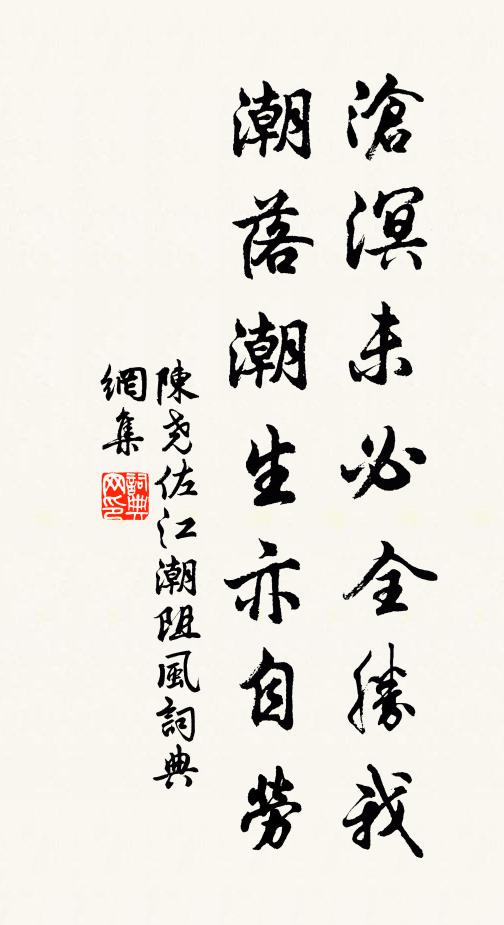 滄溟未必全勝我
潮落潮生亦自勞
陳堯佐江潮阻風詞典
網集
詞典
网印